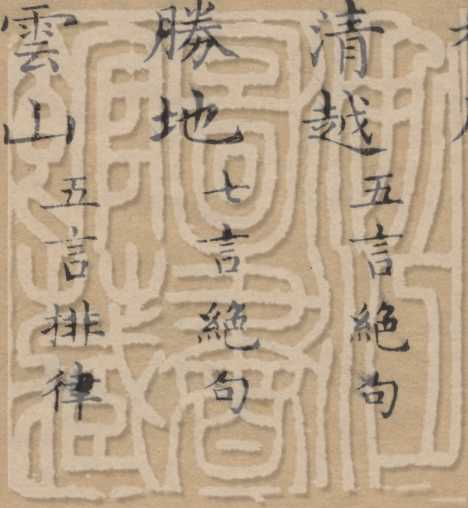 清越五言絕句
勝地七言絕句
雲山五言排律